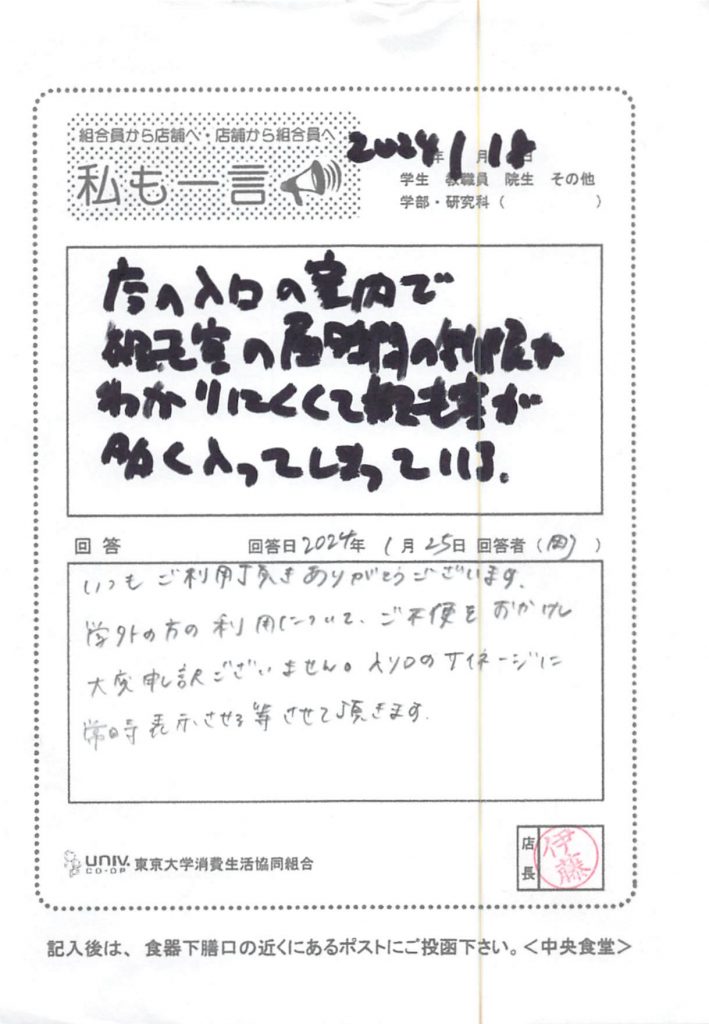 組合員から店舗へ・店舗から組合員へ
私も一言
2024年1月18日
学生 教職員 院生 その他
学部・研究科( )
店の入口の案内で
の昼時間の制限が
わかりにくくて が
多く入ってしまっている.
回答 回答日2024年1月25日 回答者( )
いつもご利用頂きありがとうございます.
学外の方の利用について、ご不便をおかけし
大変申し訳ございません。入り口のサイネージに
常時表示させる等させて頂きます.
UNIV. CO-OP 東京大学消費生活協同組合
店長 伊藤
記入後は、食器下膳口の近くにあるポストにご投函下さい。<中央食堂>